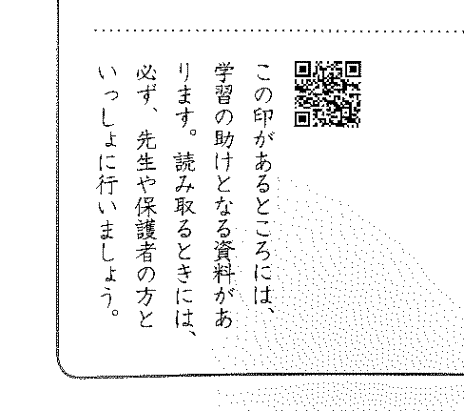 この印があるところには、
学習の助けとなる資料があ
ります。読み取るときには、
必ず、先生や保護者の方と
いっしょに行いましょう。